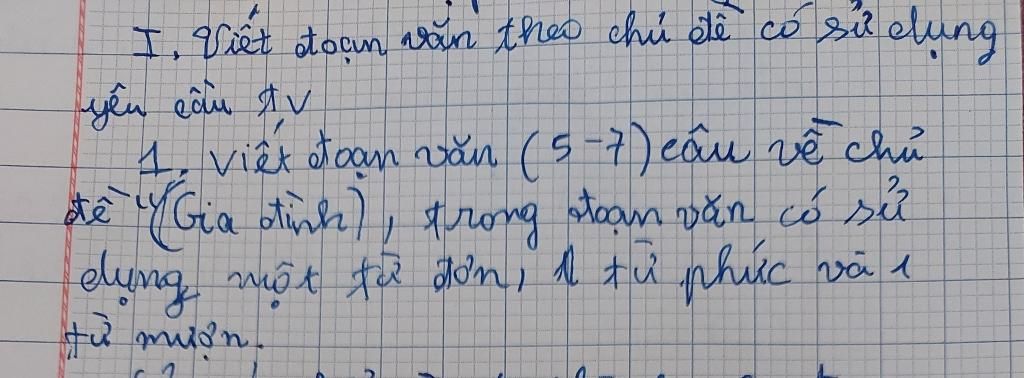 I, Viết đoạn văn theo chủ đề có sử dụng
yêu cầu TV
1, Viết đoạn văn (5-7) câu về chủ
đề "(Gia đình), trong đoạn văn có sử
dụng một từ đơn, 1 từ phức và 1
từ mượn.